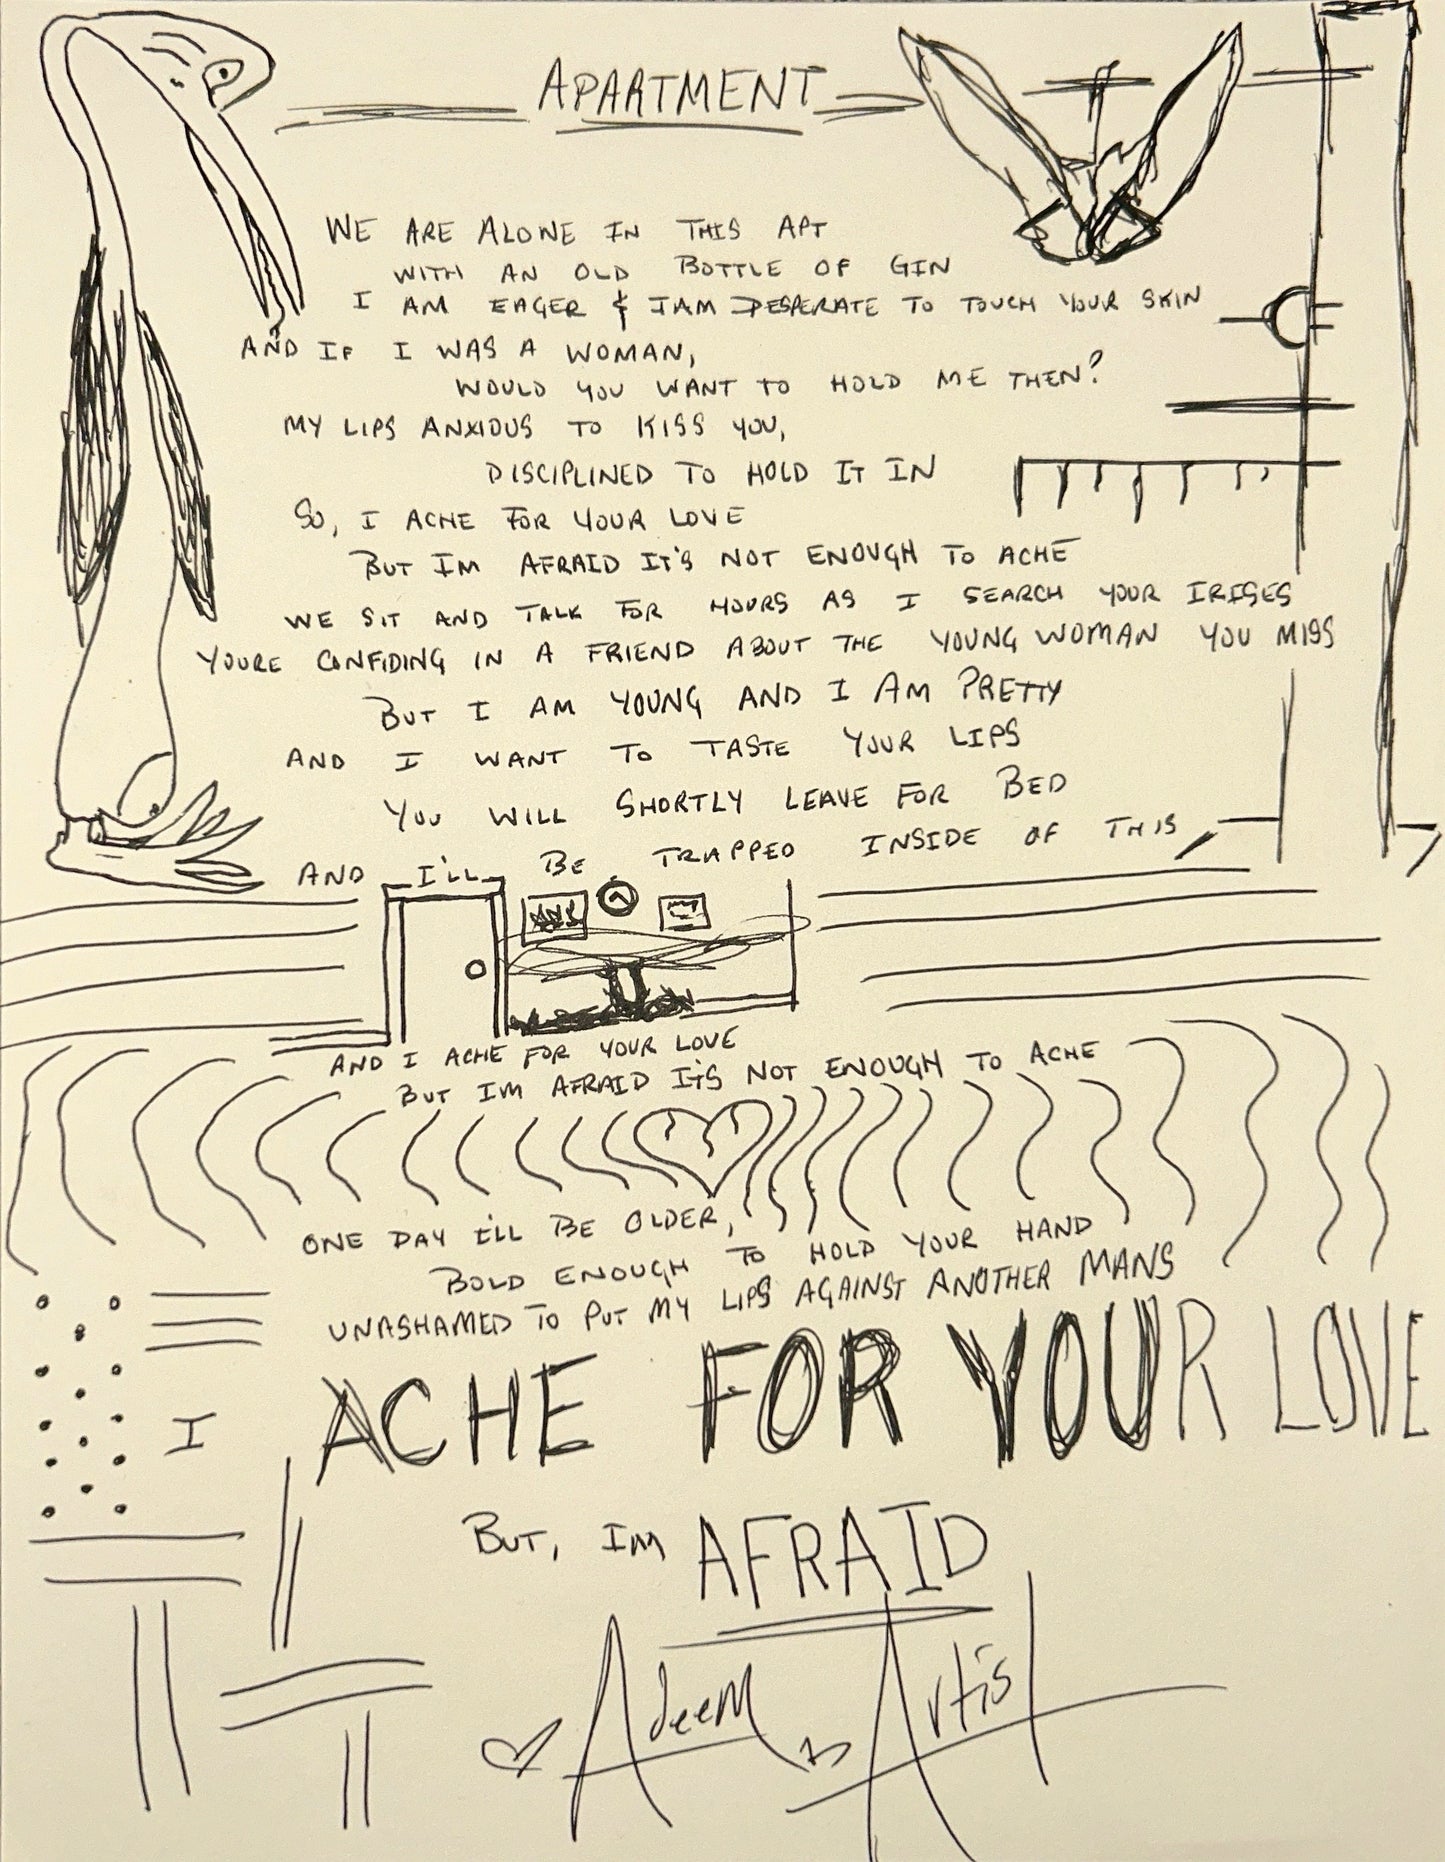 APARTMENT
WE ARE ALONE IN THIS APT
WITH AN OLD BOTTLE OF GIN
I AM EAGER & I AM DESPERATE TO TOUCH YOUR SKIN
AND IF I WAS A WOMAN,
WOULD YOU WANT TO HOLD ME THEN?
MY LIPS ANXIOUS TO KISS YOU,
DISCIPLINED TO HOLD IT IN
SO, I ACHE FOR YOUR LOVE
BUT IM AFRAID IT'S NOT ENOUGH TO ACHE
WE SIT AND TALK FOR HOURS AS I SEARCH YOUR IRISES
YOURE CONFIDING IN A FRIEND ABOUT THE YOUNG WOMAN YOU MISS
BUT I AM YOUNG AND I AM PRETTY
AND I WANT TO TASTE YOUR LIPS
YOU WILL SHORTLY LEAVE FOR BED
AND I'LL BE TRAPPED INSIDE OF THIS
AND I ACHE FOR YOUR LOVE
BUT IM AFRAID IT'S NOT ENOUGH TO ACHE
ONE DAY I'LL BE OLDER,
BOLD ENOUGH TO HOLD YOUR HAND
UNASHAMED TO PUT MY LIPS AGAINST ANOTHER MANS
I ACHE FOR YOUR LOVE
BUT, IM AFRAID
Adeem Artist